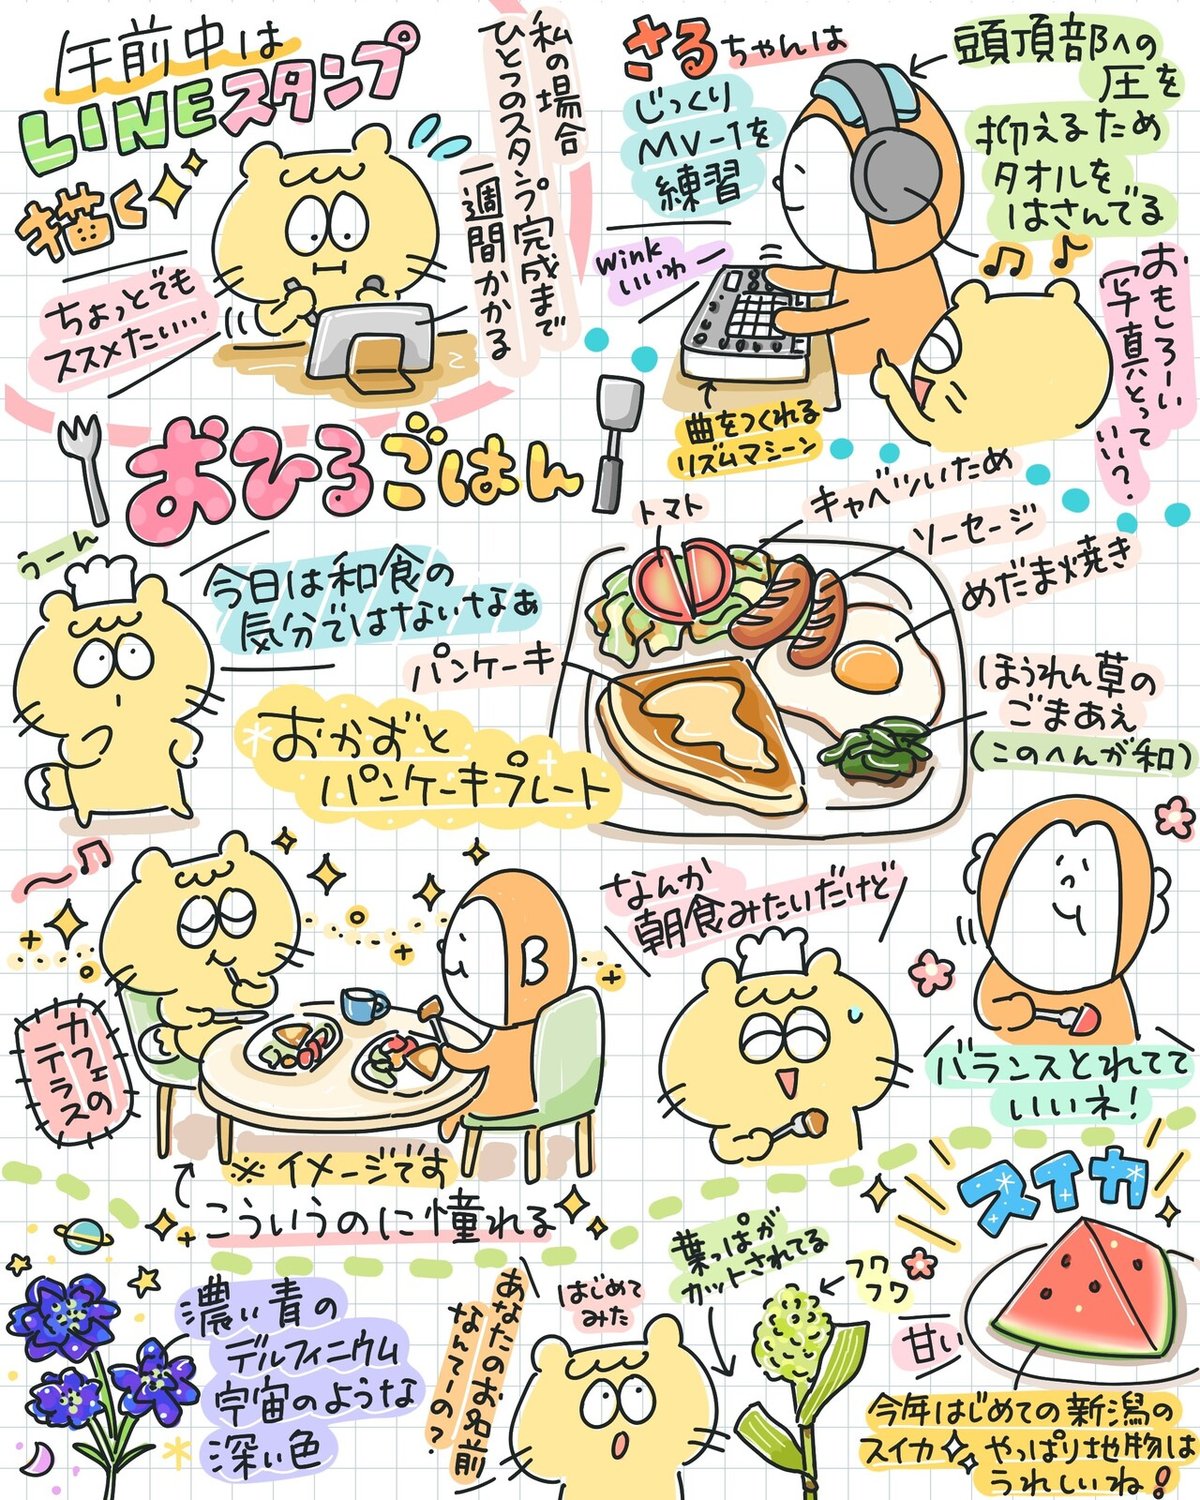 午前中は
LINEスタンプ
描く
私の場合
ひとつのスタンプ完成まで
一週間かかる
ちょっとでも
ススメたい…
さるちゃんは
じっくり
MV-1を
練習
頭頂部への
圧を
抑えるため
タオルを
はさんでる
wink
いいわ
曲をつくれる
リズムマシーン
おもしろーい
写真とって
いい?
おひるごはん
うーん
今日は和食の
気分ではないなぁ
おかずと
パンケーキプレート
トマト
キャベツいため
ソーセージ
めだま焼き
パンケーキ
ほうれん草の
ごまあえ
(このへんが和)
カフェの
テラス
※イメージです
こういうのに憧れる
なんか
朝食みたいだけど
バランスとれてて
いいネ!
濃い青の
デルフィニウム
宇宙のような
深い色
あなたのお名前
なんてーの?
はじめて
みた
葉っぱが
カットされてる
フワ
フワ
スイカ
甘い
今年はじめての新潟の
スイカ やっぱり地物は
うれしいね!